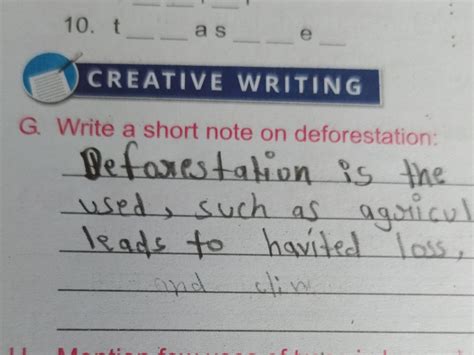 10. t__ __ a s __ __ e __
CREATIVE WRITING
G. Write a short note on deforestation:
Deforestation is the
used, such as agricul
leads to havited loss,
and clim